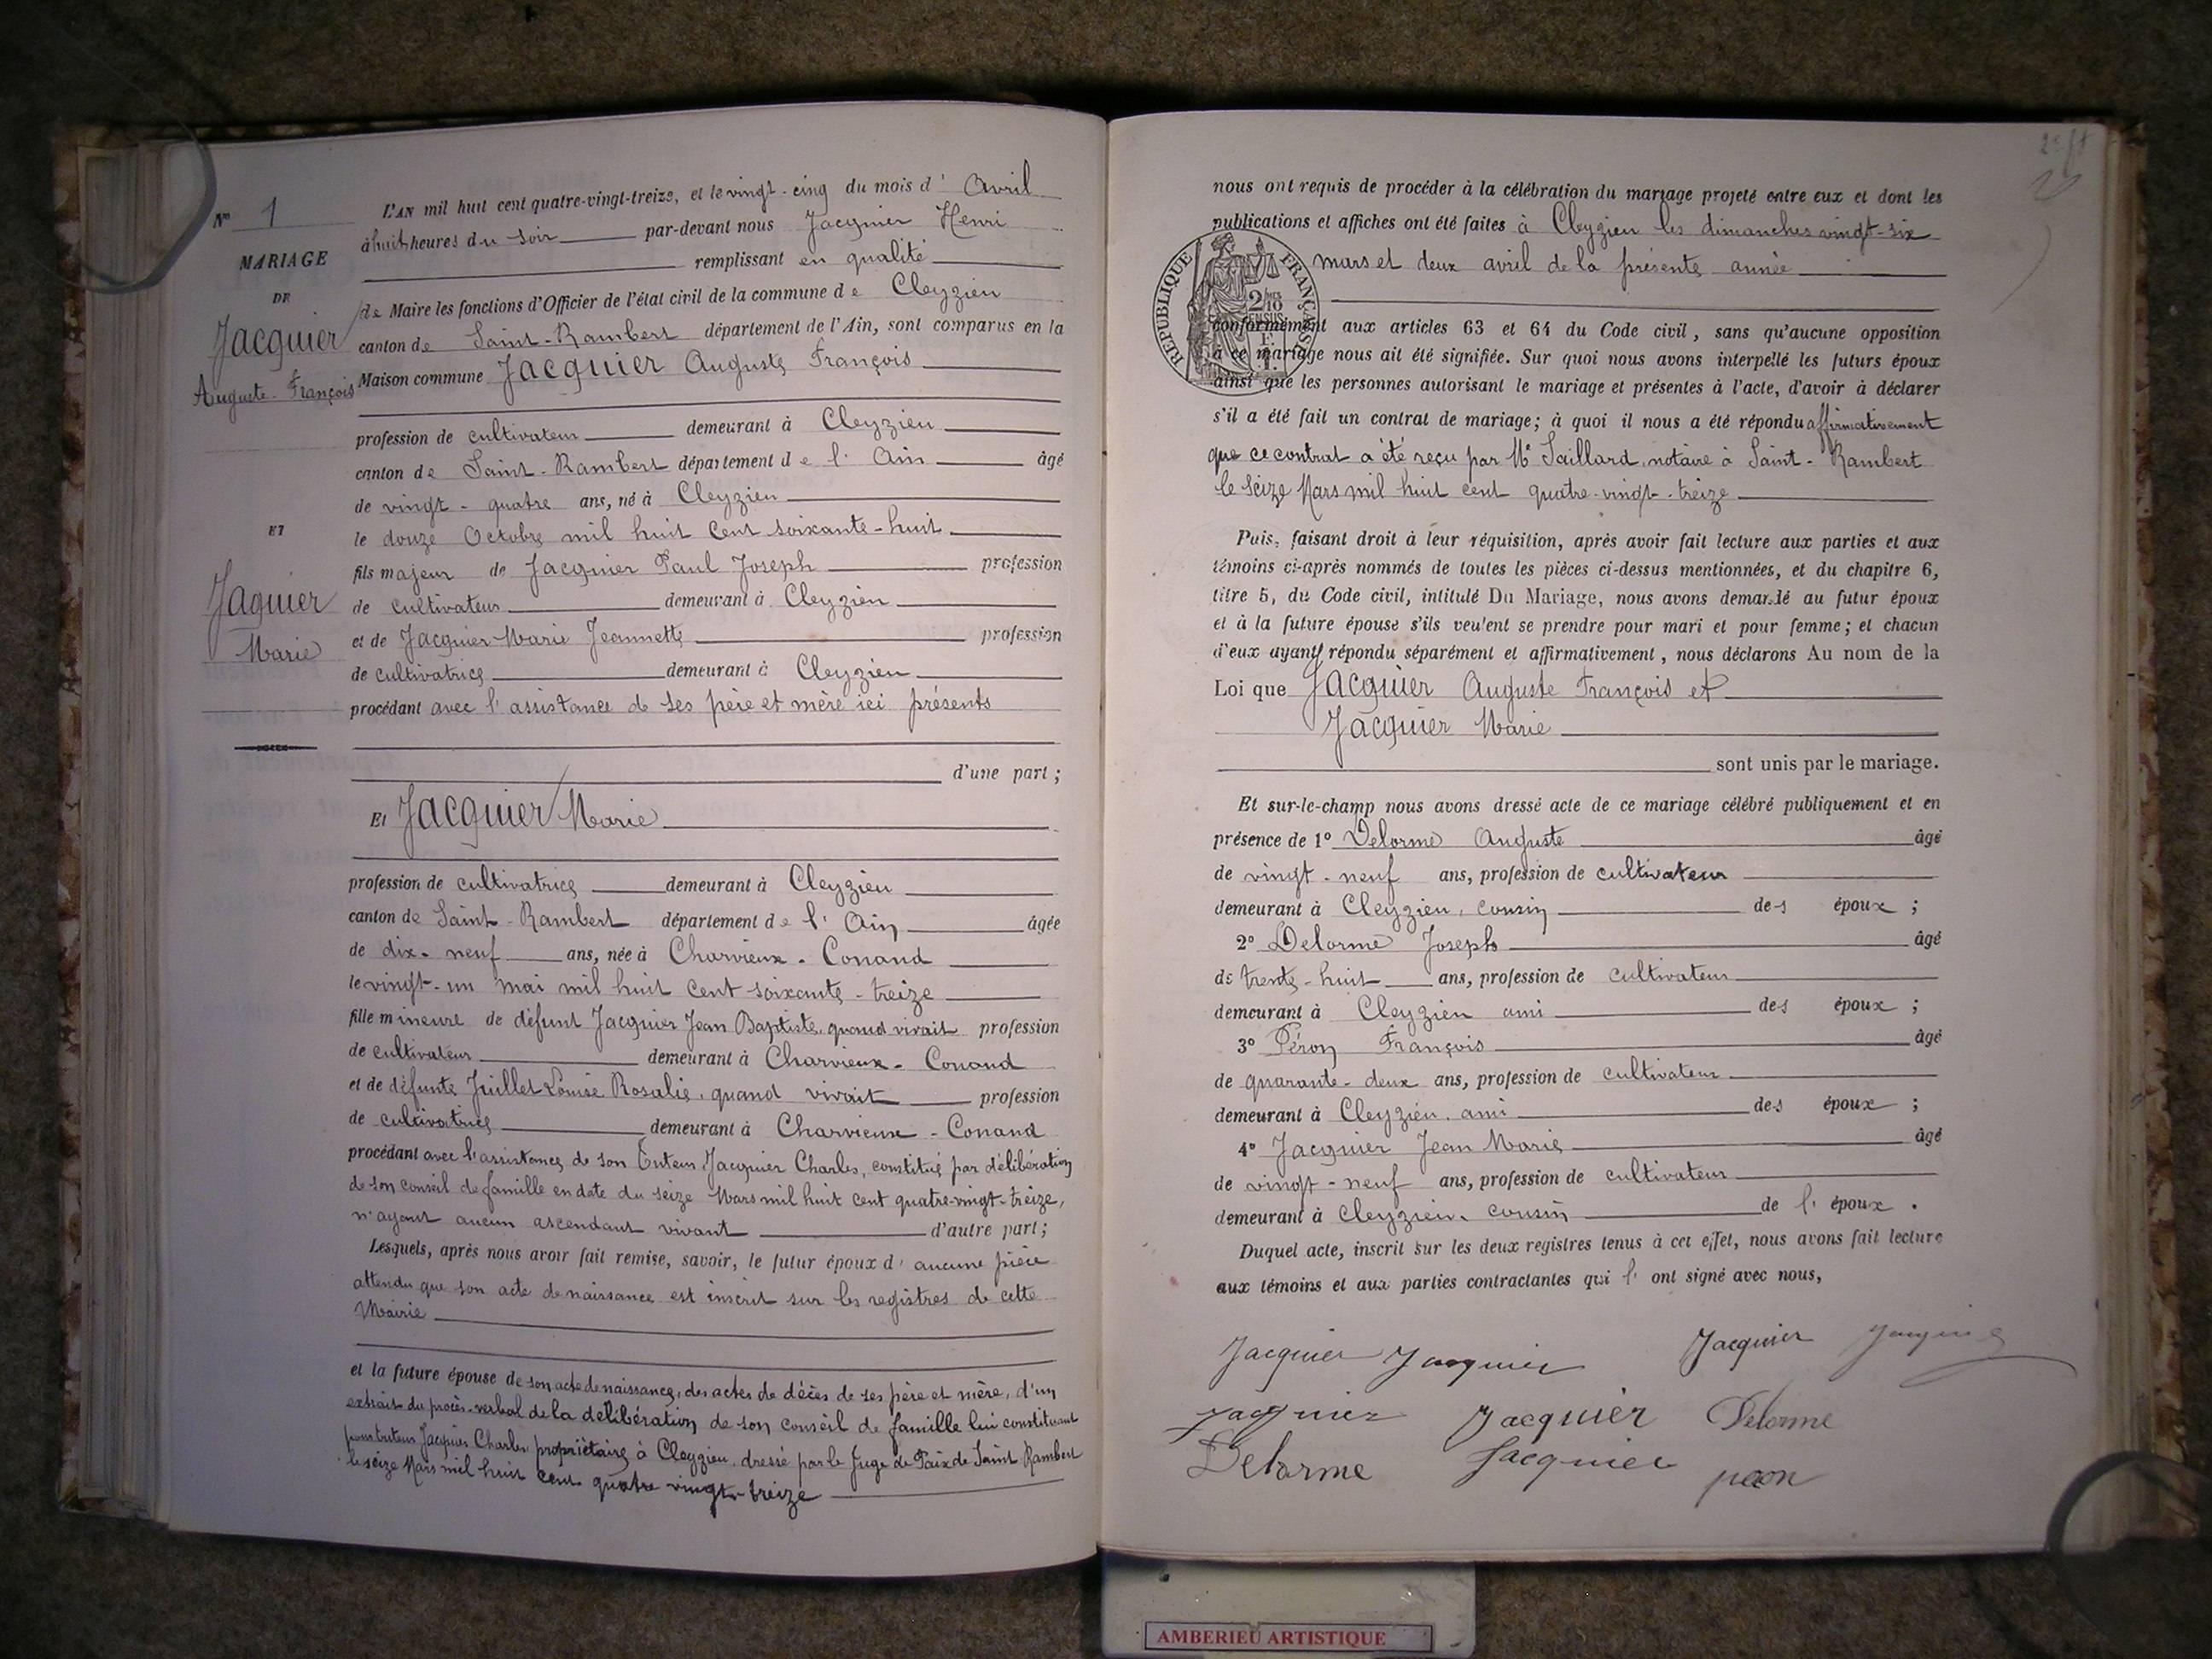 N° 1
MARIAGE
DE
Jacquier
Auguste-François
ET
Jaquier
Marie
L'AN mil huit cent quatre-vingt-treize, et le vingt-cinq du mois d' Avril
à huit heures du soir par-devant nous Jacquier Henri
remplissant en qualité
de Maire les fonctions d'Officier de l'état civil de la commune de Cleyzieu
canton de Saint-Rambert département de l'Ain, sont comparus en la
Maison commune Jacquier Auguste François
profession de cultivateur demeurant à Cleyzieu
canton de Saint-Rambert département de l'Ain âgé
de vingt-quatre ans, né à Cleyzieu
le douze Octobre mil huit cent soixante-huit
fils majeur de Jacquier Paul Joseph profession
de cultivateur demeurant à Cleyzieu
et de Jacquier Marie Jeannette profession
de cultivatrice demeurant à Cleyzieu
procédant avec l'assistance de ses père et mère ici présents
d'une part ;
Et Jacquier Marie
profession de cultivatrice demeurant à Cleyzieu
canton de Saint-Rambert département de l'Ain âgée
de dix-neuf ans, née à Charvieux-Conand
le vingt-un mai mil huit cent soixante-treize
fille mineure de défunt Jacquier Jean Baptiste, quand vivait profession
de cultivateur demeurant à Charvieux-Conand
et de défunte Juillet Louise Rosalie, quand vivait profession
de cultivatrice demeurant à Charvieux-Conand
procédant avec l'assistance de son Tuteur Jacquier Charles, constitué par délibération
de son conseil de famille en date du seize Mars mil huit cent quatre-vingt-treize,
n'ayant aucun ascendant vivant d'autre part ;
Lesquels, après nous avoir fait remise, savoir, le futur époux d'aucune pièce
attendu que son acte de naissance est inscrit sur les registres de cette
Mairie
et la future épouse de son acte de naissance, des actes de décès de ses père et mère, d'un
extrait du procès-verbal de la délibération de son conseil de famille lui constituant
pour tuteur Jacquier Charles propriétaire à Cleyzieu, dressé par le Juge de Paix de Saint Rambert
le seize Mars mil huit cent quatre vingt-treize
nous ont requis de procéder à la célébration du mariage projeté entre eux et dont les
publications et affiches ont été faites à Cleyzieu les dimanches vingt-six
mars et deux avril de la présente année
RÉPUBLIQUE FRANÇAISE
2/10 EN SUS
conformément aux articles 63 et 64 du Code civil, sans qu'aucune opposition
à ce mariage nous ait été signifiée. Sur quoi nous avons interpellé les futurs époux
ainsi que les personnes autorisant le mariage et présentes à l'acte, d'avoir à déclarer
s'il a été fait un contrat de mariage; à quoi il nous a été répondu affirmativement
que ce contrat a été reçu par Me Saillard, notaire à Saint-Rambert
le Seize Mars mil huit cent quatre-vingt-treize
Puis, faisant droit à leur réquisition, après avoir fait lecture aux parties et aux
témoins ci-après nommés de toutes les pièces ci-dessus mentionnées, et du chapitre 6,
titre 5, du Code civil, intitulé Du Mariage, nous avons demandé au futur époux
et à la future épouse s'ils veulent se prendre pour mari et pour femme ; et chacun
d'eux ayant répondu séparément et affirmativement, nous déclarons Au nom de la
Loi que Jacquier Auguste François et
Jacquier Marie
sont unis par le mariage.
Et sur-le-champ nous avons dressé acte de ce mariage célébré publiquement et en
présence de 1° Delorme Auguste âgé
de vingt-neuf ans, profession de cultivateur
demeurant à Cleyzieu, cousin des époux ;
2° Delorme Joseph âgé
de trente-huit ans, profession de cultivateur
demeurant à Cleyzieu ami des époux ;
3° Péron François âgé
de quarante-deux ans, profession de cultivateur
demeurant à Cleyzieu, ami des époux ;
4° Jacquier Jean Marie âgé
de vingt-neuf ans, profession de cultivateur
demeurant à Cleyzieu, cousin de l'époux.
Duquel acte, inscrit sur les deux registres tenus à cet effet, nous avons fait lecture
aux témoins et aux parties contractantes qui l'ont signé avec nous,
Jacquier Jacquier Jacquier Jacquier
Jacquier Jacquier Delorme
Delorme Jacquier peron
AMBERIEU ARTISTIQUE